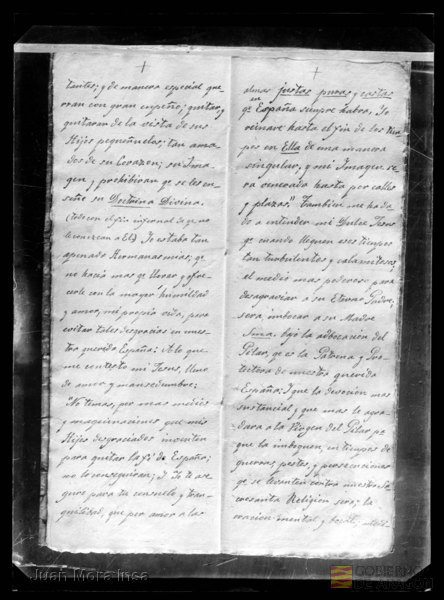 tantes; y de manera especial que-
rran con gran empeño; quitar, y
quitaran de la vista de sus
Hijos pequeñuelos; tan ama-
dos de su Corazon; su Ima-
gen, y prohibiran qe se les en-
señe su Doctrina Divina.
(todo con el fin infernal de qe no
le conozcan a El) Yo estaba tan
apenada Hermanas mias; qe
no hacia mas qe llorar y ofre-
cerle con la mayor humildad
y amor, mi propia vida, para
evitar tales desgracias en nues-
tra querida España: A lo que
me contestó mi Jesus, lleno
de amor y mansedumbre:
"No temas, por mas medios
y maquinaciones que mis
Hijos desgraciados inventen
para quitar la fé de España,
no lo conseguiran; Y Yo te ase-
guro para tu consuelo y tran-
quilidad, que por amor a las
almas justas puras y castas
qe en España siempre habra, Yo
reinaré hasta el fin de los tiem-
pos en Ella de una manera
singular, y mi Imagen se-
ra venerada hasta por calles
y plazas." Tambien me ha da-
do a entender mi Dulce Jesus
qe cuando lleguen esos tiempos
tan turbulentos y calamitosos,
el medio mas poderoso para
desagraviar a su Eterno Padre,
sera imbocar a su Madre
Sma. bajo la adbocacion del
Pilar, qe es la Patrona y Pro-
tectora de nuestra querida
España; Y que la devocion mas
sustancial, y que mas le agra-
dara a la Virgen del Pilar pa
que la imboquen, en tiempos de
guerras, pestes, y persecuciones
qe se levanten contra nuestra Sa-
crosanta Religion sera; la
oracion mental y bocal
Juan Mora Insa
GOBIERNO
DE ARAGON